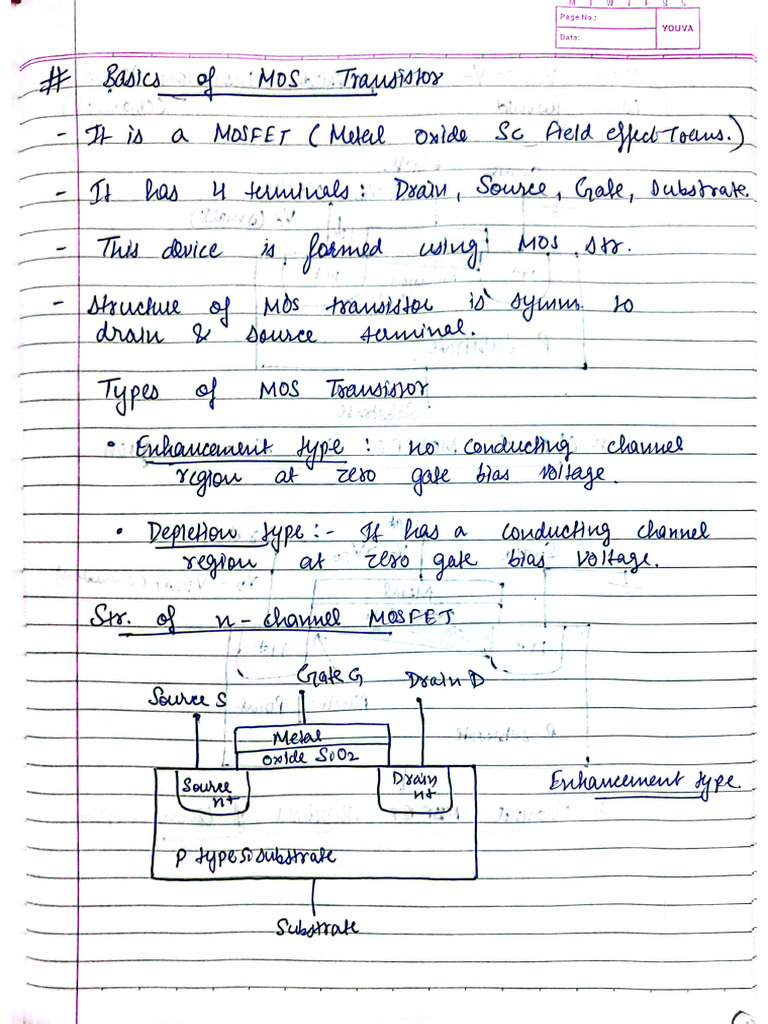 M T W T F S S
Page No.:
Date:
YOUVA
# Basics of MOS Transistor
- It is a MOSFET (Metal Oxide Sc Field effect Trans.)
- It has 4 terminals: Drain, Source, Gate, Substrate.
- This device is formed using MOS str.
- Structure of MOS transistor is symm. to
drain & source terminal.
Types of MOS Transistor
• Enhancement type : no conducting channel
region at zero gate bias voltage.
• Depletion type :- It has a conducting channel
region at zero gate bias voltage.
Str. of n-channel MOSFET
Source S
Gate G
Drain D
Metal
Oxide SiO2
Source
n+
Drain
n+
P type Si substrate
Substrate
Enhancement type